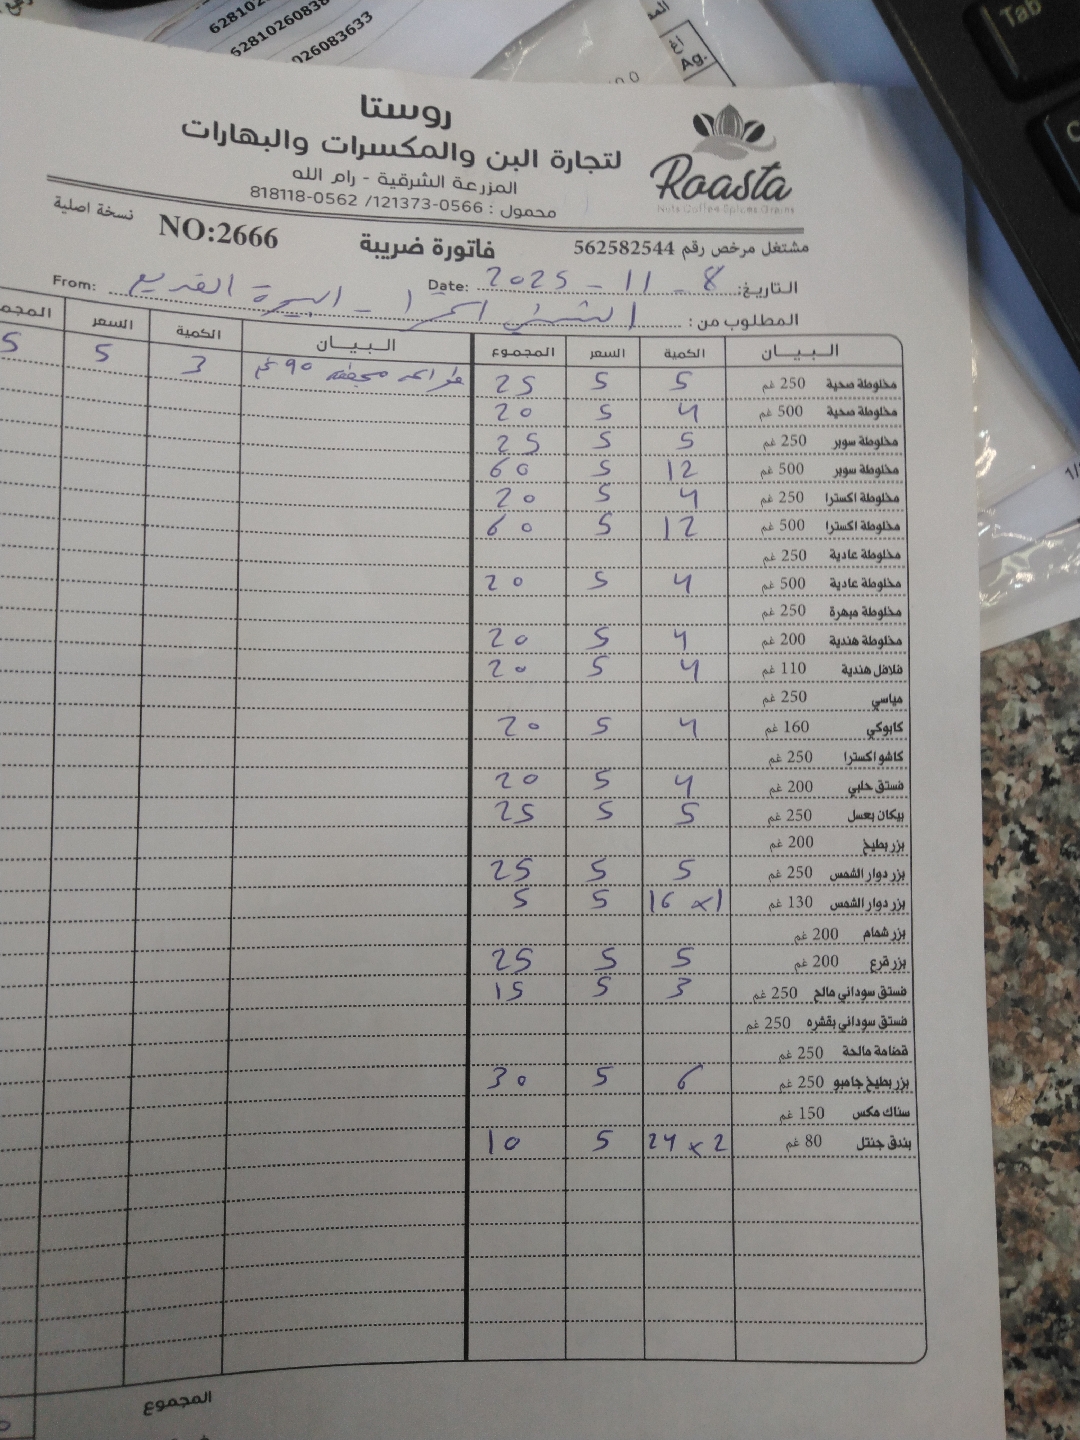 6281026083
6281026083633
026083633
Ag.
Tab
روستا
لتجارة البن والمكسرات والبهارات
المزرعة الشرقية - رام الله
محمول : 0566-121373/ 0562-818118
Roasta
Nuts Coffee Spices Grains
مشتغل مرخص رقم 562582544
فاتورة ضريبة
NO:2666
نسخة اصلية
التاريخ: 8 - 11 - 2025 Date:
From:
المطلوب من :
البيـان الكمية السعر المجموع البيـان الكمية السعر
مخلوطة صحية 250 غم 5 5 25 مجففة 90 غم 3 5 5
مخلوطة صحية 500 غم 4 5 20
مخلوطة سوبر 250 غم 5 5 25
مخلوطة سوبر 500 غم 12 5 60
مخلوطة اكسترا 250 غم 4 5 20
مخلوطة اكسترا 500 غم 12 5 60
مخلوطة عادية 250 غم
مخلوطة عادية 500 غم 4 5 20
مخلوطة مبهرة 250 غم
مخلوطة هندية 200 غم 4 5 20
فلافل هندية 110 غم 4 5 20
مياسي 250 غم
كابوكي 160 غم 4 5 20
كاشو اكسترا 250 غم
فستق حلبي 200 غم 4 5 20
بيكان بعسل 250 غم 5 5 25
بزر بطيخ 200 غم
بزر دوار الشمس 250 غم 5 5 25
بزر دوار الشمس 130 غم 1 × 16 5 5
بزر شمام 200 غم
بزر قرع 200 غم 5 5 25
فستق سوداني مالح 250 غم 3 5 15
فستق سوداني بقشره 250 غم
قضامة مالحة 250 غم
بزر بطيخ جامبو 250 غم 6 5 30
سناك مكس 150 غم
بندق جنتل 80 غم 2 × 24 5 10
المجموع